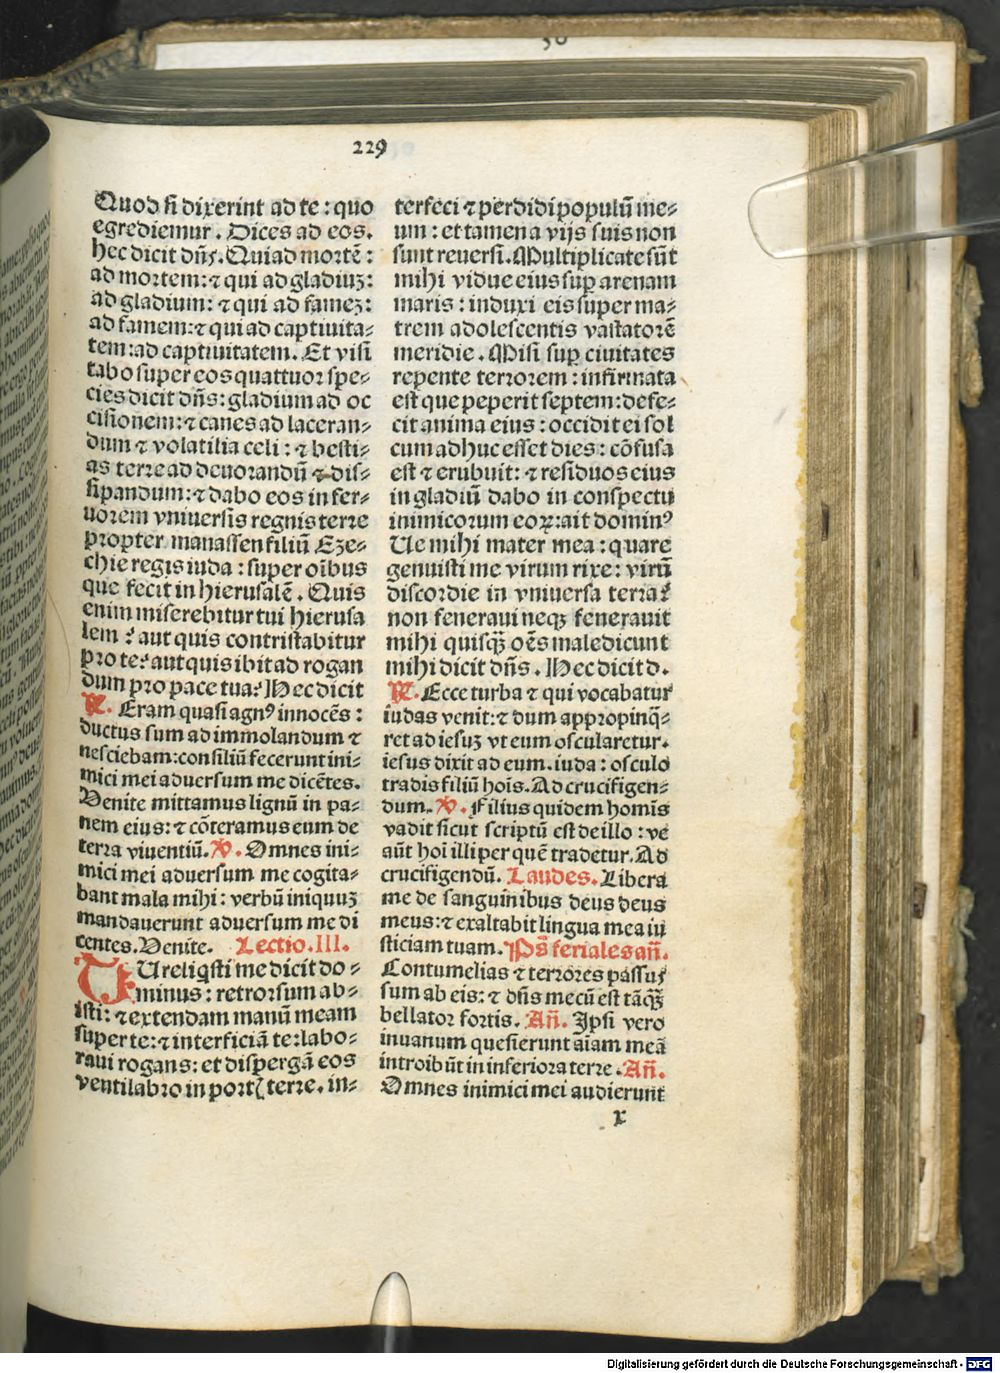 229
Quod si dixerint ad te : quo
egrediemur . Dices ad eos.
hec dicit dñs. Qui ad mortē :
ad mortem: ⁊ qui ad gladiuꝫ:
ad gladium: ⁊ qui ad fameꝫ:
ad famem: ⁊ qui ad captiuita⸗
tem: ad captiuitatem. Et visi
tabo super eos quattuor spe⸗
cies dicit dñs: gladium ad oc
cisionem: ⁊ canes ad laceran⸗
dum ⁊ volatilia celi : ⁊ besti⸗
as terre ad deuorandū ⁊ dis⸗
sipandum: ⁊ dabo eos in fer⸗
uorem vniuersis regnis terre
propter manassen filiū Eze⸗
chie regis iuda : super oībus
que fecit in hierusalē. Quis
enim miserebitur tui hierusa
lem ? aut quis contristabitur
pro te? aut quis ibit ad rogan
dum pro pace tua? Hec dicit
℟. Eram quasi agnꝰ innocēs :
ductus sum ad immolandum ⁊
nesciebam: consiliū fecerunt ini⸗
mici mei aduersum me dicētes.
Venite mittamus lignū in pa⸗
nem eius: ⁊ cōteramus eum de
terra viuentiū. ℣. Omnes ini⸗
mici mei aduersum me cogita⸗
bant mala mihi : verbū iniquuꝫ
mandauerunt aduersum me di
centes. Venite. Lectio. III.
TU reliqsti me dicit do⸗
minus : retrorsum ab⸗
isti: ⁊ extendam manū meam
super te: ⁊ interficiā te: labo⸗
raui rogans: et dispergā eos
ventilabro in portꝭ terre. in⸗
terfeci ⁊ perdidi populū me⸗
um : et tamen a vijs suis non
sunt reuersi. Multiplicate sūt
mihi vidue eius suꝑ arenam
maris : induxi eis super ma⸗
trem adolescentis vastatorē
meridie . Misi suꝑ ciuitates
repente terrorem : infirmata
est que peperit septem: defe⸗
cit anima eius : occidit ei sol
cum adhuc esset dies : cōfusa
est ⁊ erubuit: ⁊ residuos eius
in gladiū dabo in conspectu
inimicorum eoꝝ: ait dominꝰ
Ue mihi mater mea : quare
genuisti me virum rixe: virū
discordie in vniuersa terra?
non feneraui neqꝫ fenerauit
mihi quisqꝫ̃ oēs maledicunt
mihi dicit dñs . Hec dicit d.
℟. Ecce turba ⁊ qui vocabatur
iudas venit: ⁊ dum appropinq̄⸗
ret ad iesuꝫ vt eum oscularetur.
iesus dixit ad eum. iuda : osculo
tradis filiū hoīs. Ad crucifigen⸗
dum. ℣. Filius quidem homīs
vadit sicut scriptū est de illo : ve
aūt hoī illi per quē tradetur. Ad
crucifigendū. Laudes. Libera
me de sanguinibus deus deus
meus: ⁊ exaltabit lingua mea iu
sticiam tuam. Ps̄ feriales añ.
Contumelias ⁊ terrores passus
sum ab eis: ⁊ dñs mecū est tāqꝫ̃
bellator fortis. Añ. Ipsi vero
inuanum quesierunt aīam meā
introibūt in inferiora terre . Añ.
Omnes inimici mei audierunt
x
Digitalisierung gefördert durch die Deutsche Forschungsgemeinschaft - DFG